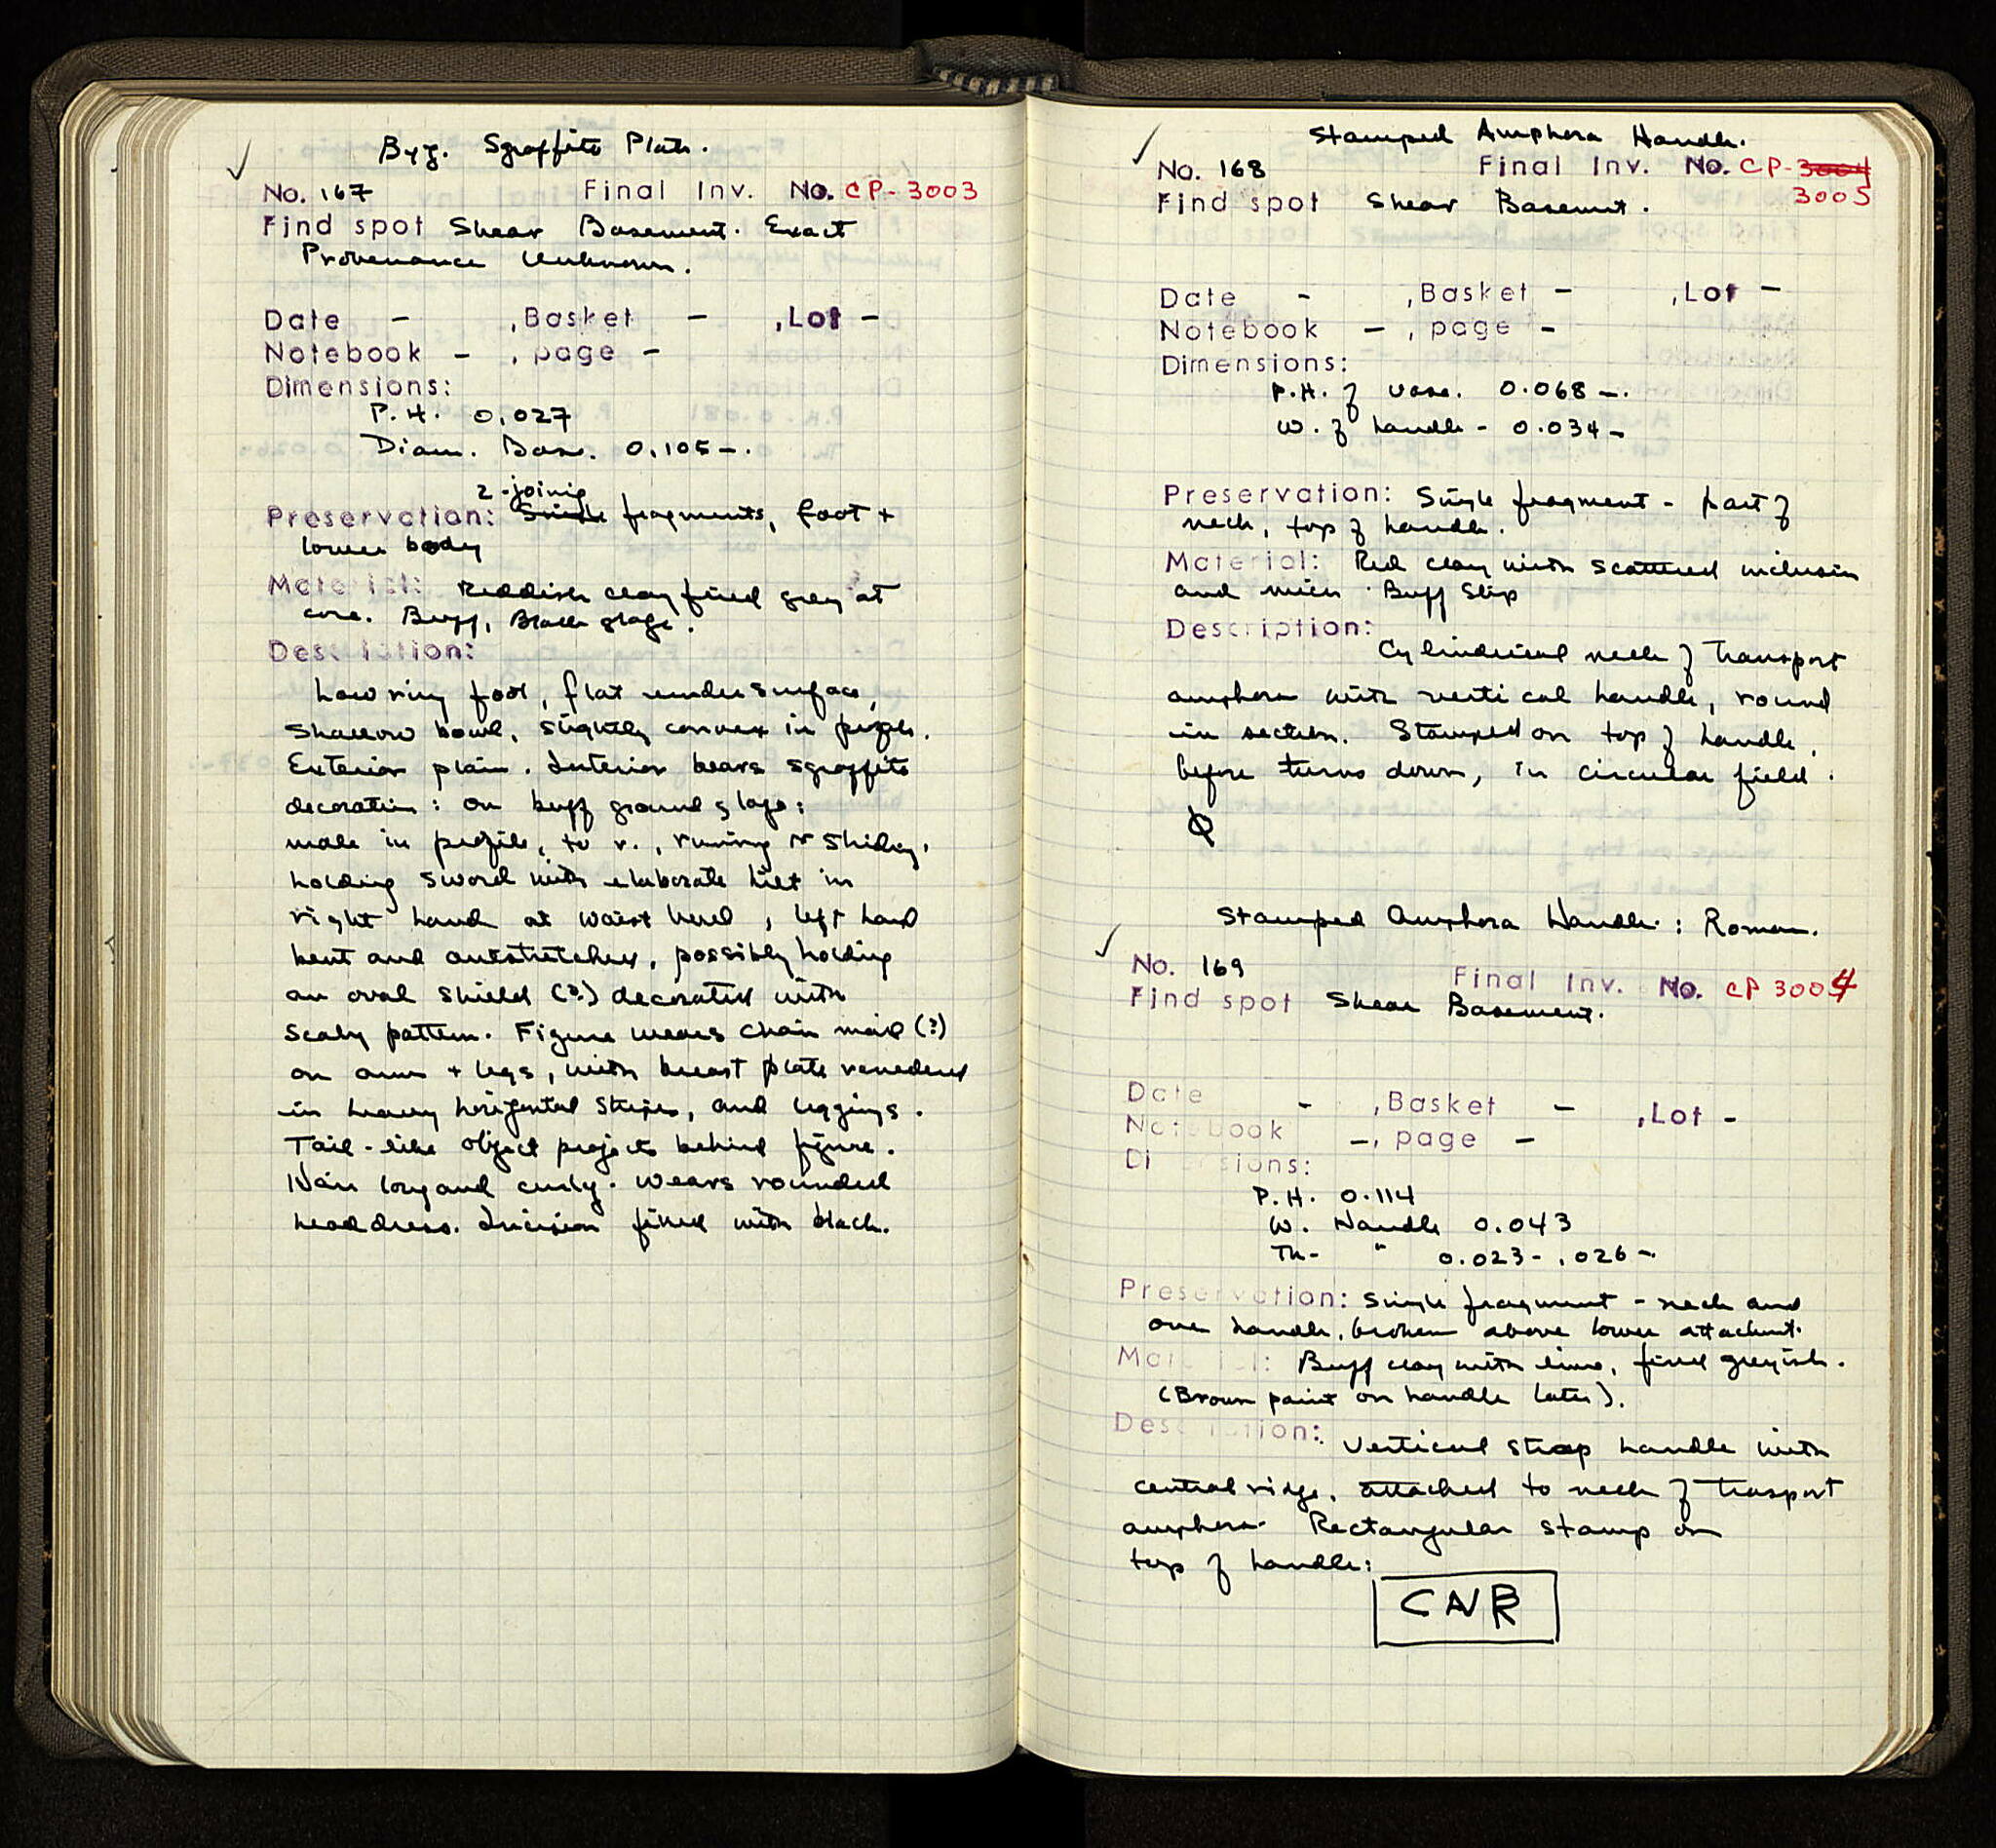 Byz. Sgraffito Plate.
No. 167 Final Inv. No. CP-3003
Find spot Shear Basement. Exact
Provenance Unknown.
Date - , Basket - , Lot -
Notebook - , page -
Dimensions:
P.H. 0.027
Diam. Base. 0.105-.
2-joinig
Preservation: Single fragments, foot +
lower body
Material: Reddish clay fired grey at
core. Buff, Black glaze.
Description:
Low ring foot, flat undersurface,
Shallow bowl, slightly convex in profile.
Exterior plain. Interior bears sgraffito
decoration: on buff ground glaze:
male in profile, to r., running or striding,
holding sword with elaborate hilt in
right hand at waist level, left hand
bent and outstretched, possibly holding
an oval shield (?) decorated with
Scaly pattern. Figure wears chain mail (?)
on arm + legs, with breast plate renedered
in heavy horizontal stripes, and leggings.
Tail-like object projects behind figure.
Hair long and curly. Wears rounded
headdress. Incision filled with black.
Stamped Amphora Handle.
No. 168 Final Inv. No. CP-3004
3005
Find spot Shear Basement.
Date - , Basket - , Lot -
Notebook - , page -
Dimensions:
P.H. of vase. 0.068-.
W. of handle - 0.034-
Preservation: Single fragment - part of
neck, top of handle.
Material: Red clay with scattered inclusion
and mica. Buff Slip
Description:
Cylindrical neck of transport
amphora with vertical handle, round
in section. Stamped on top of handle,
before turns down, in circular field.
Stamped Amphora Handle: Roman.
No. 169 Final Inv. No. CP 3004
Find spot Shear Basement.
Date - , Basket - , Lot -
Notebook -, page -
Dimensions:
P.H. 0.114
W. Handle 0.043
Th- " 0.023-.026-.
Preservation: Single fragment - neck and
one handle, broken above lower attachmt.
Material: Buff clay with lime, fired greyish.
(Brown paint on handle later).
Description: Vertical strap handle with
central ridge, attached to neck of trasport
amphora. Rectangular stamp on
top of handle:
CNR